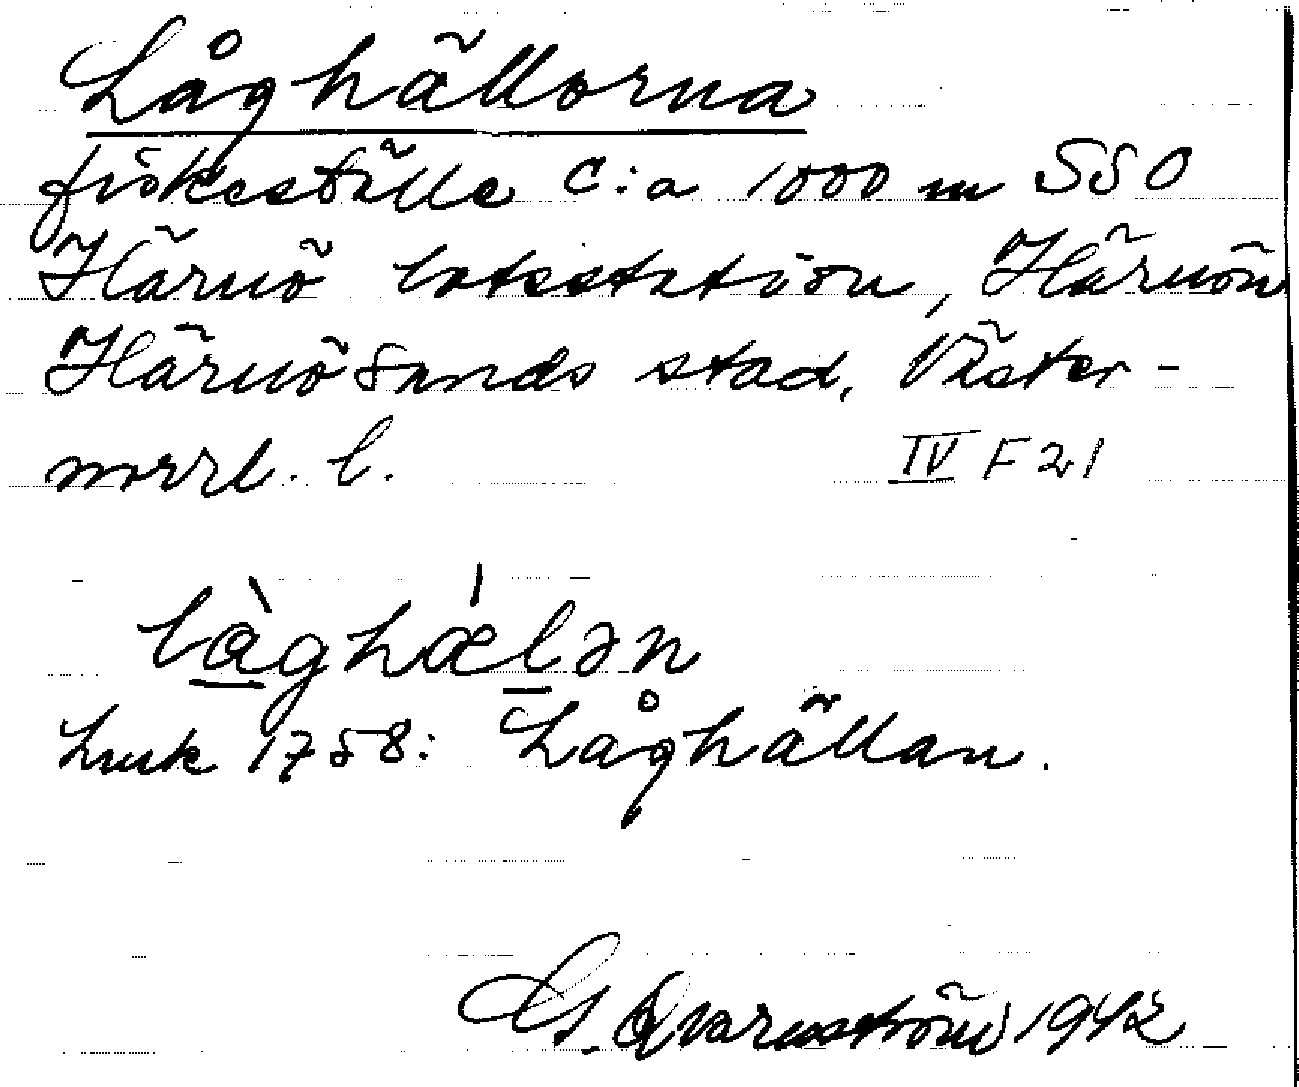 Låghällorna
fiskeställe c:a 1000 m SSO
Härnö lotsstation, Härnön
Härnösands stad, Väster-
norrl. l.
IV F 21
là̠ghǽl̠ən
Lmk 1758: Låghällan.
G. Qvarnström 1942